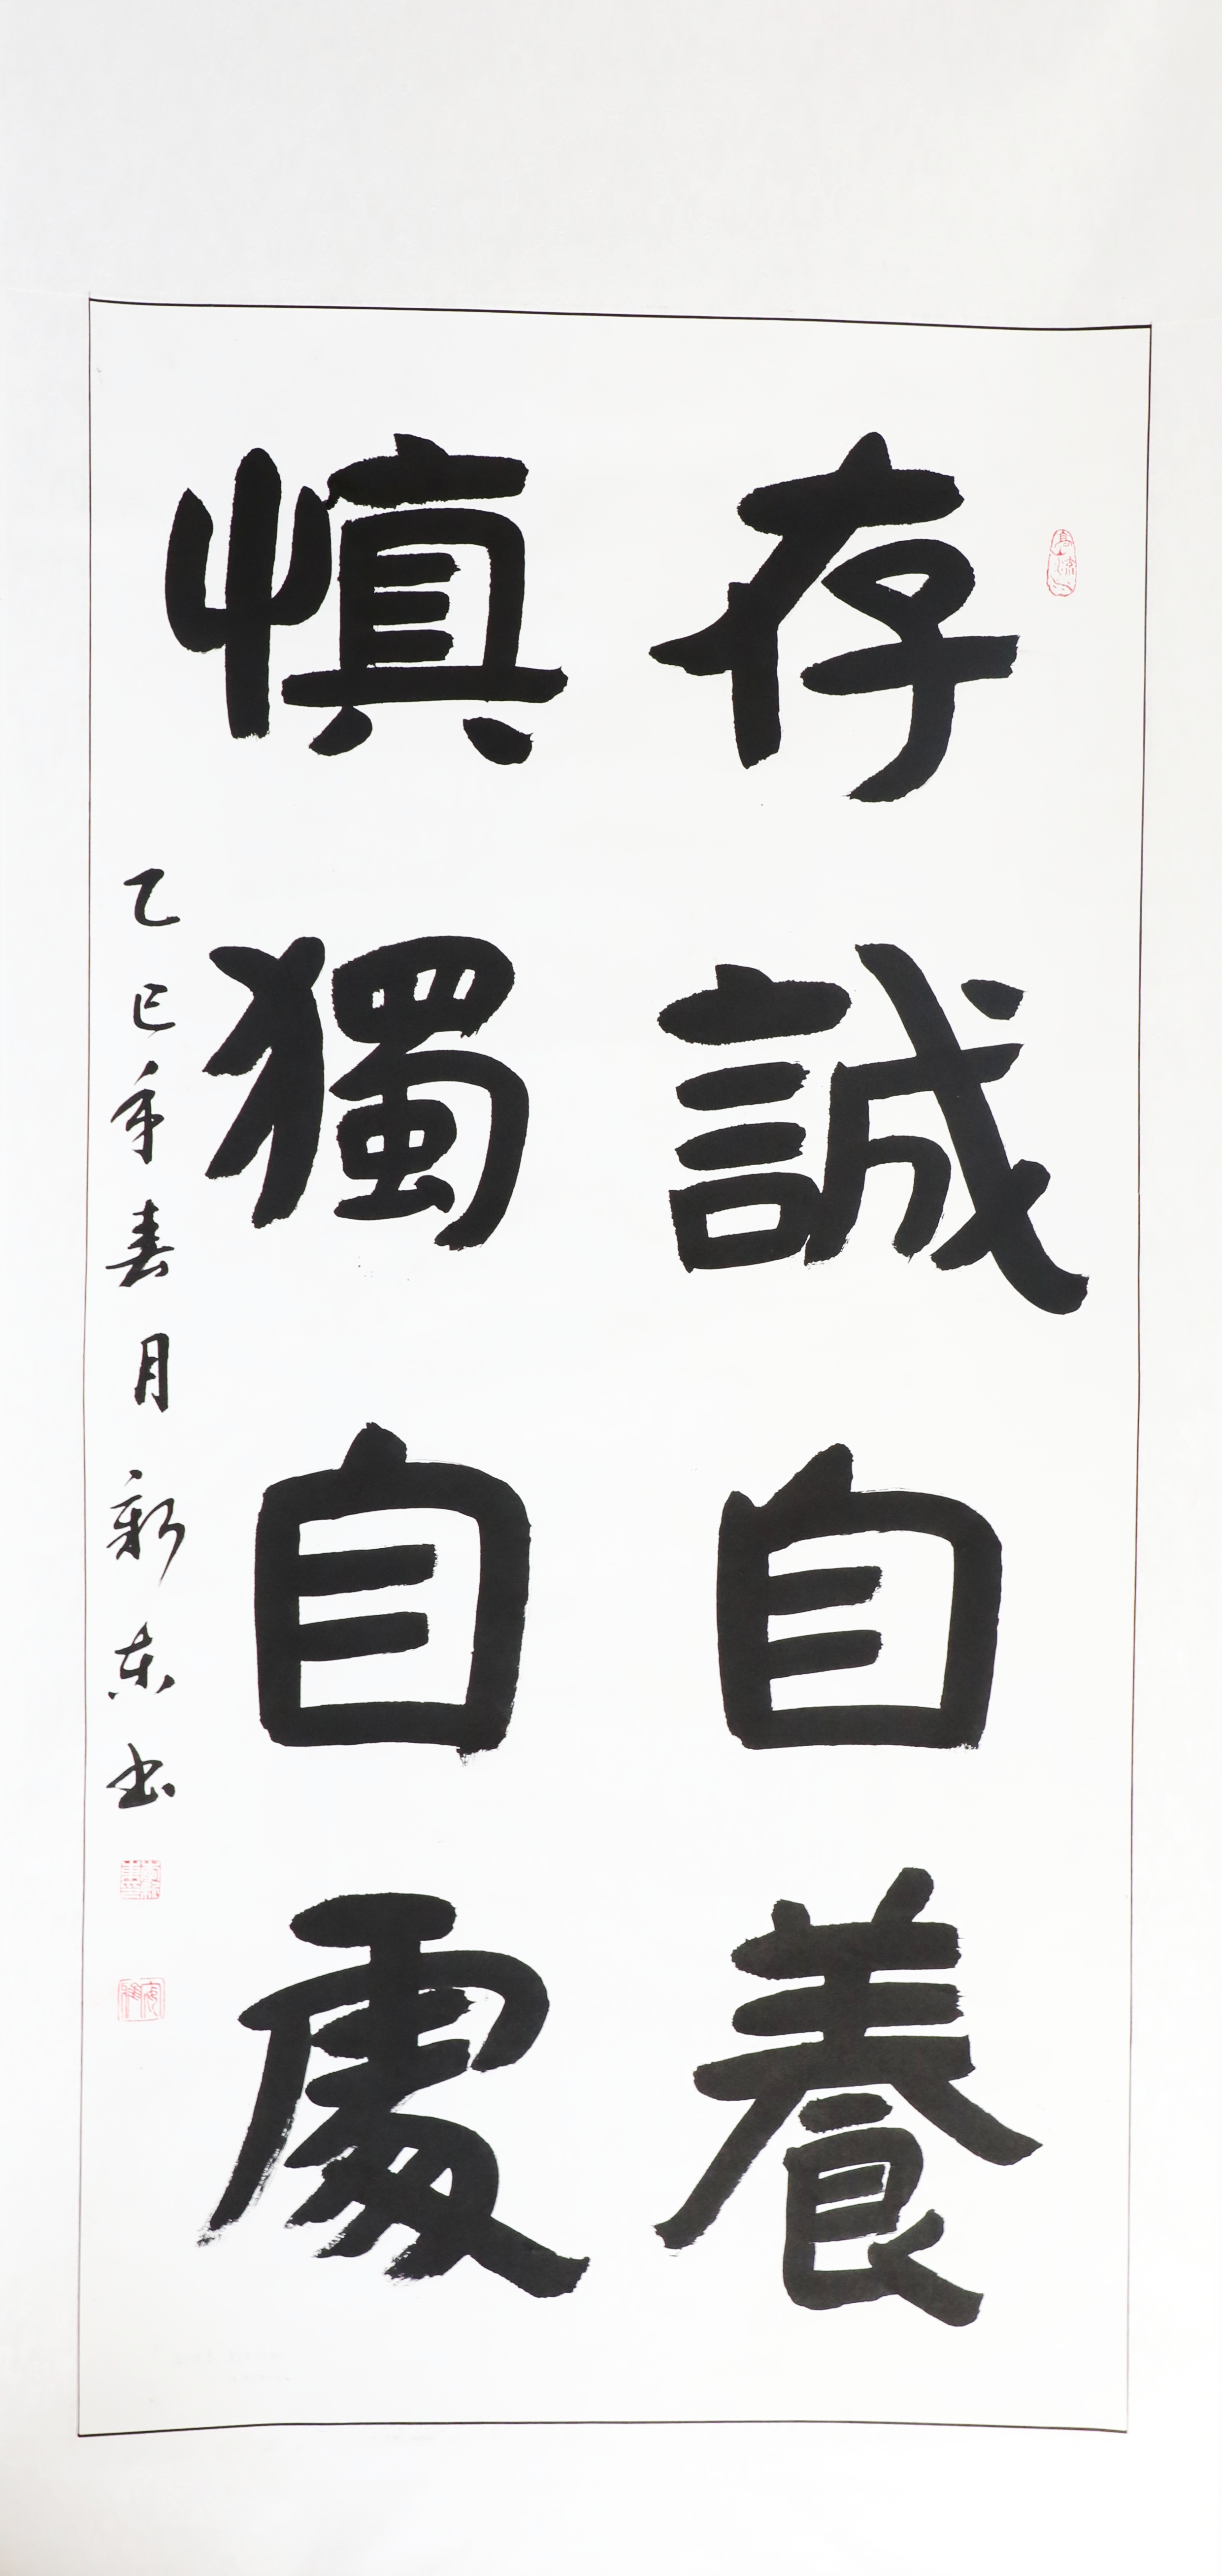 存誠自養
慎獨自處
乙巳年春月新东书